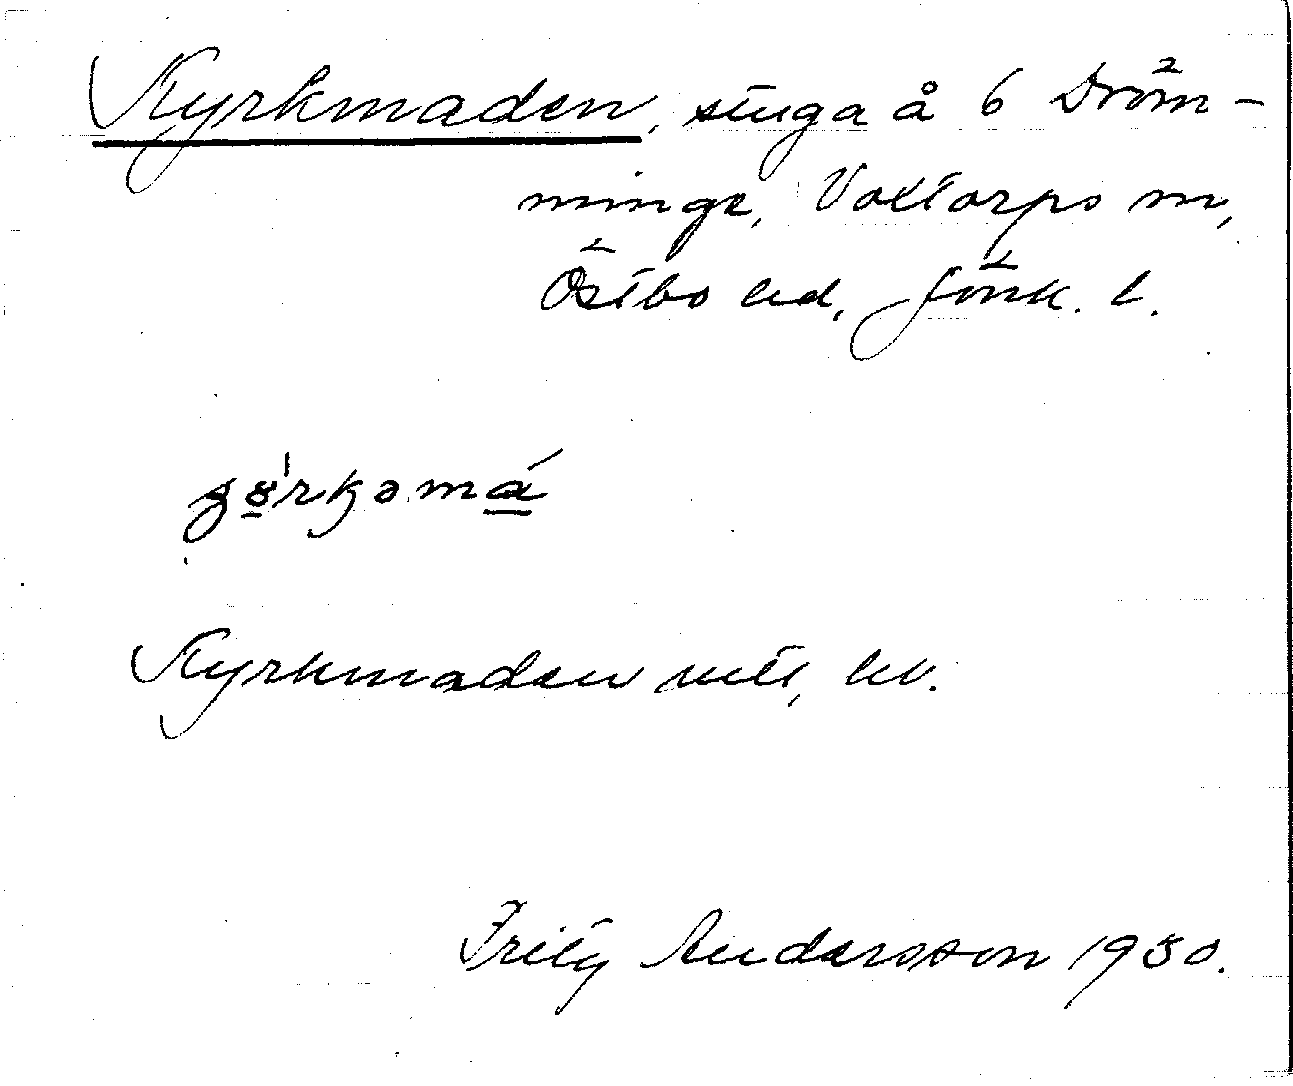 Kyrkmaden, stuga å 6 Dröm-
minge, Voxtorps sn,
Östbo hd, Jönk. l.
Kyrkmaden uttl, hv.
Fritz Andersson 1930.